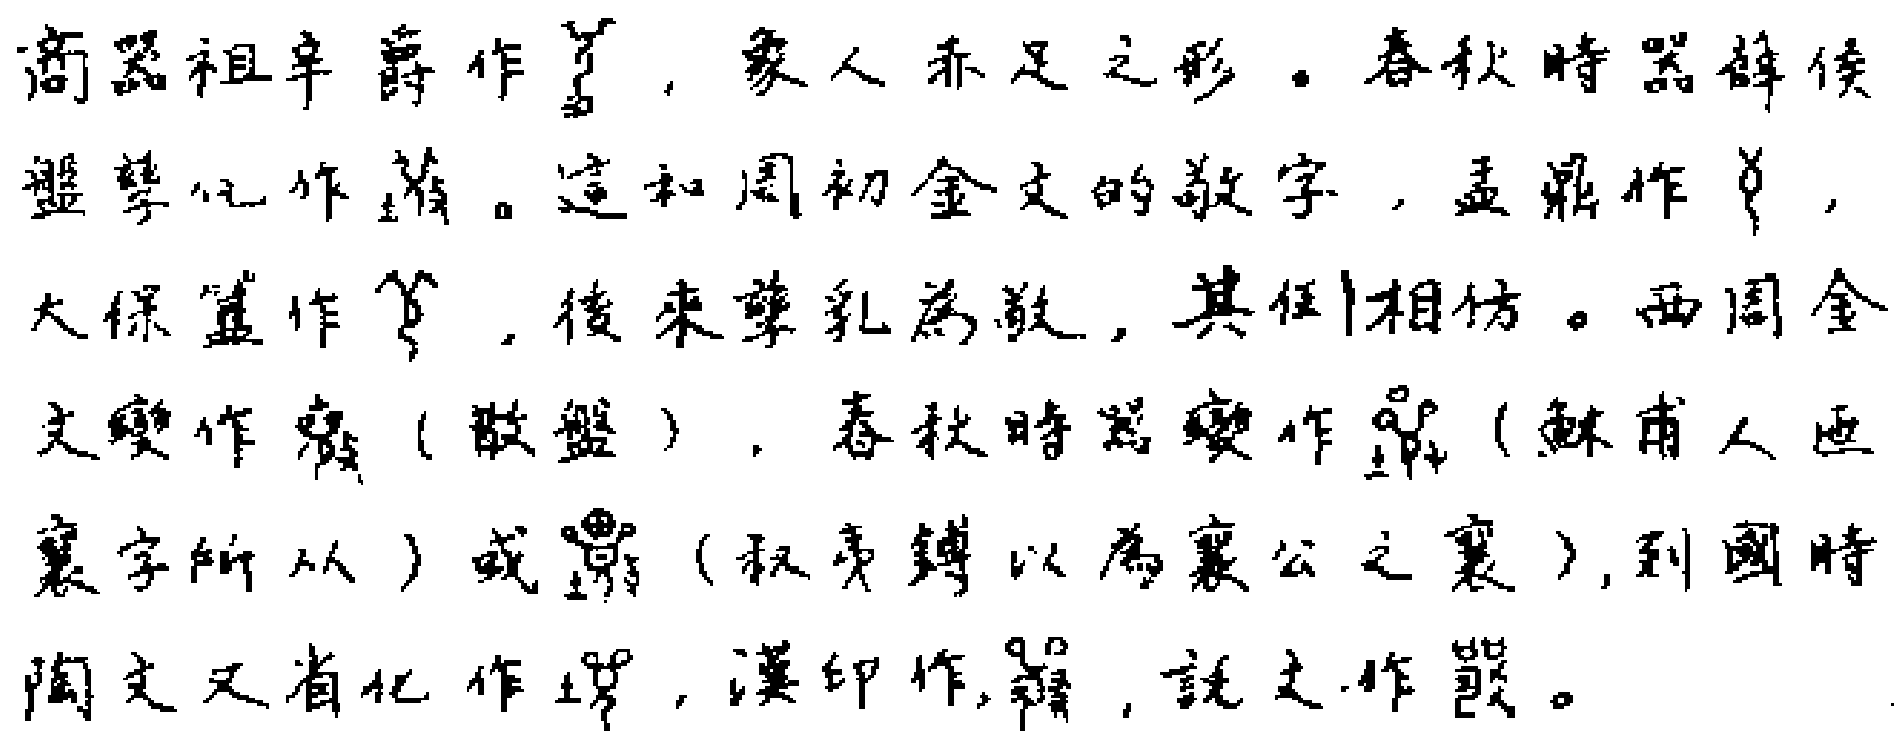 商器祖辛爵作,象人赤足之形。春秋時器薛侯
盤孳化作。這和周初金文的敬字,盂鼎作,
大保簋作,後來孳乳為敬,其例相仿。西周金
文變作(散盤),春秋時器變作(穌甫人匜
襄字所从)或(叔夷鎛以為襄公之襄),到國時
陶文又省化作,漢印作,說文作。